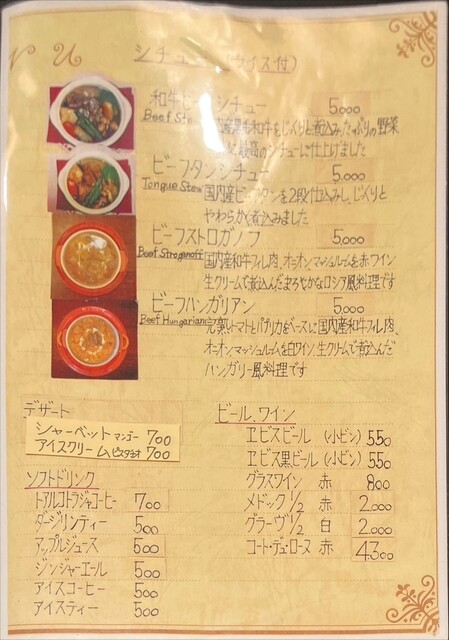 nu
シチュー (ライス付)
和牛ビーフシチュー 5,000
Beef Stew 国産黒毛和牛をじっくりと煮込みたっぷりの野菜
最高のシチューに仕上げました
ビーフタンシチュー 5,000
Tongue Stew 国内産ビーフタンを2段仕込みし、じっくりと
やわらかく煮込みました
ビーフストロガノフ 5,000
Beef Stroganoff 国内産和牛フィレ肉、オニオンマッシュルームを赤ワイン
生クリームで煮込んだまろやかなロシア風料理です
ビーフハンガリアン 5,000
Beef Hungarian 完熟トマトとパプリカをベースに国内産和牛フィレ肉、
オニオンマッシュルームを白ワイン、生クリームで煮込んだ
ハンガリー風料理です
デザート
シャーベット マンゴー 700
アイスクリーム ピスタチオ 700
ソフトドリンク
トアルコトラジャコーヒー 700
ダージリンティー 500
アップルジュース 500
ジンジャーエール 500
アイスコーヒー 500
アイスティー 500
ビール、ワイン
ヱビスビール (小ビン) 550
ヱビス黒ビール (小ビン) 550
グラスワイン 赤 800
メドック 1/2 赤 2,000
グラーヴ 1/2 白 2,000
コート・デュ・ローヌ 赤 4,300